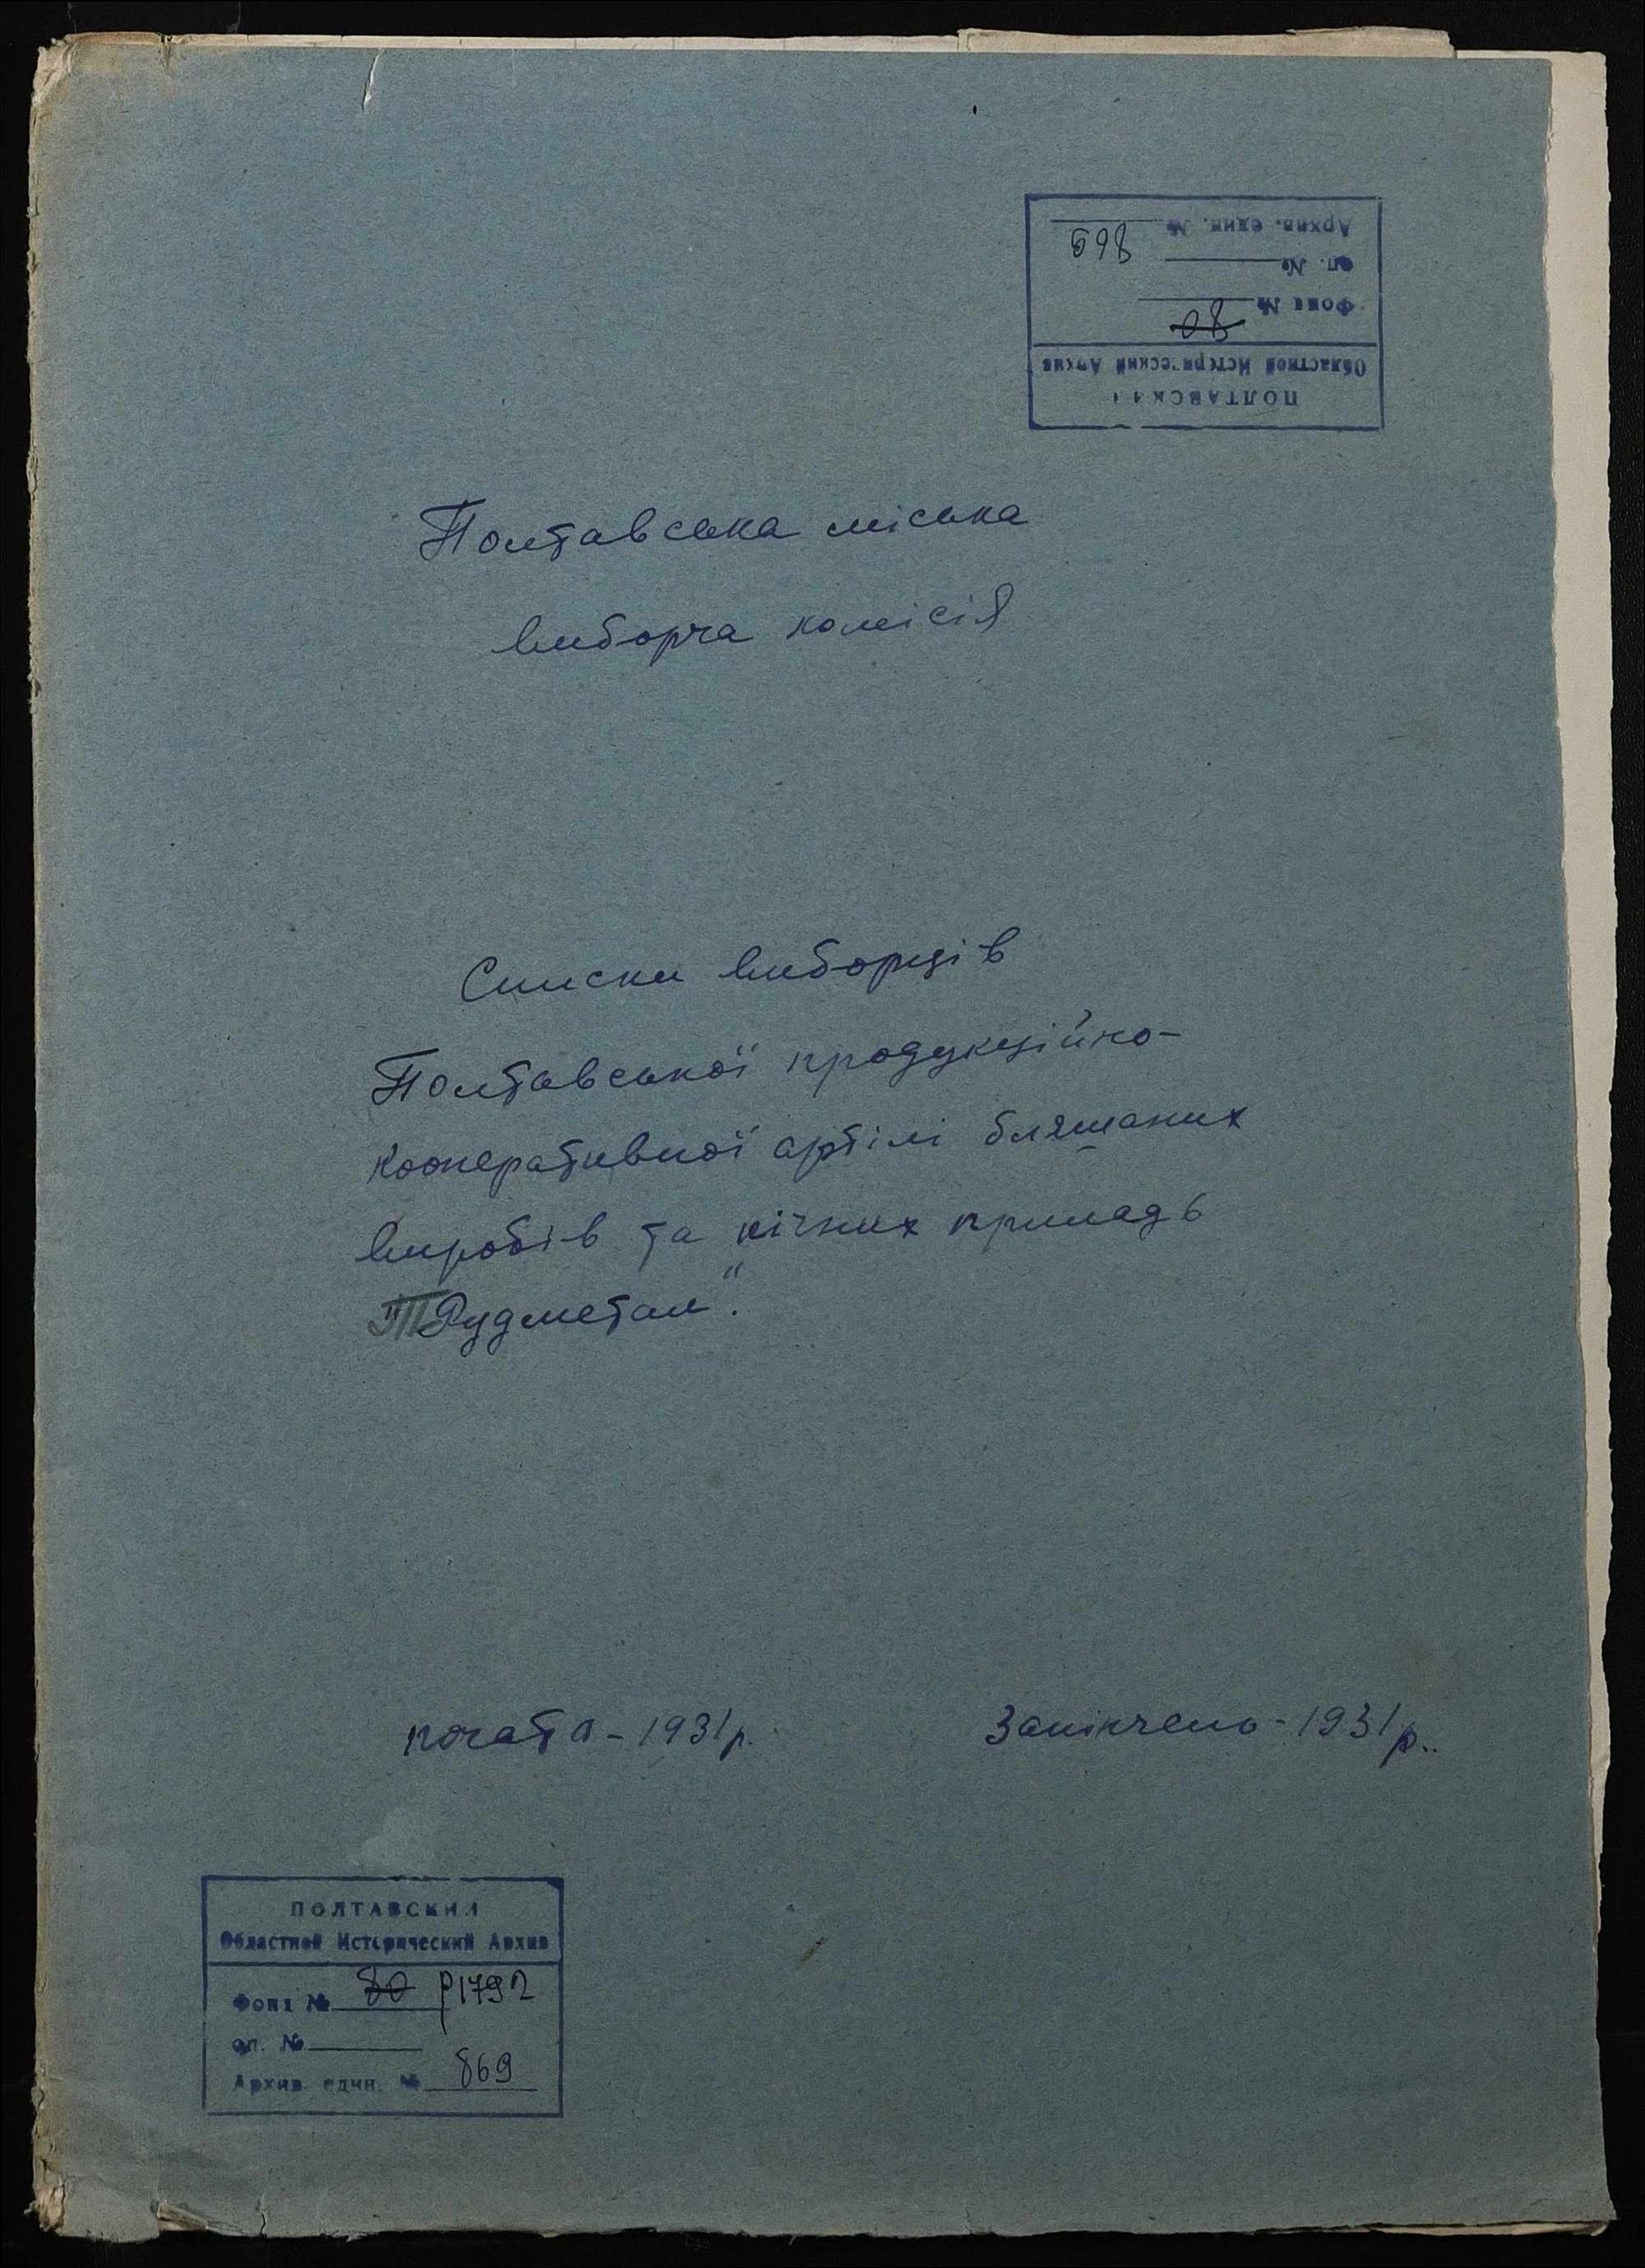 ПОЛТАВСКИЙ
Областной Исторический Архив
Фонд № 80
оп. №
Архив. един. № 869
Полтавська міська
виборча комісія
Списки виборців
Полтавської продукційно-
кооперативної артілі бляшаних
виробів та пічних приладь
"Рудметал".
почата - 1931 р.
Закінчено - 1931 р..
ПОЛТАВСКИЙ
Областной Исторический Архив
Фонд № 80 Р1792
оп. №
Архив. един. № 869